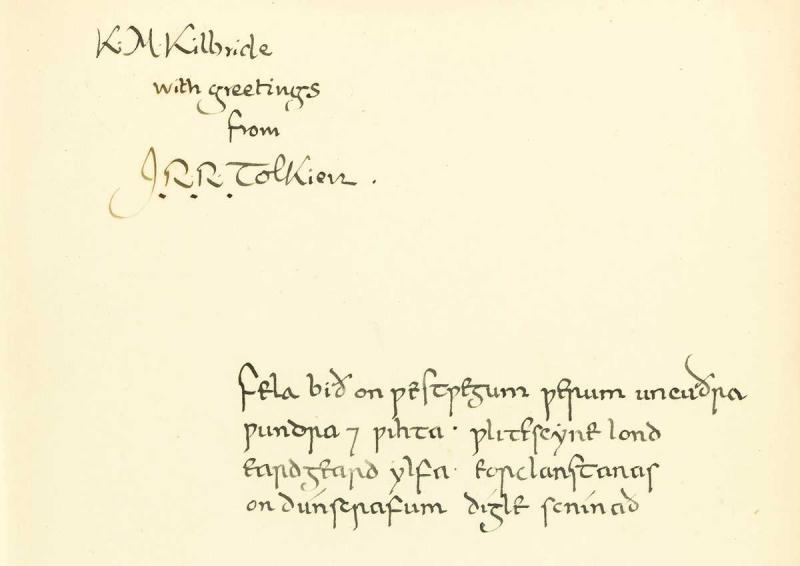 K. M. Kilbride
with greetings
from
J. R. R. Tolkien.
Fela bið on ƿestƿegum ƿerum uncuðra
ƿundra ⁊ ƿihta · ƿlitescýne lond
eardgeard ylfa · eorclanstanas
on dúnscrafum dígle scínað